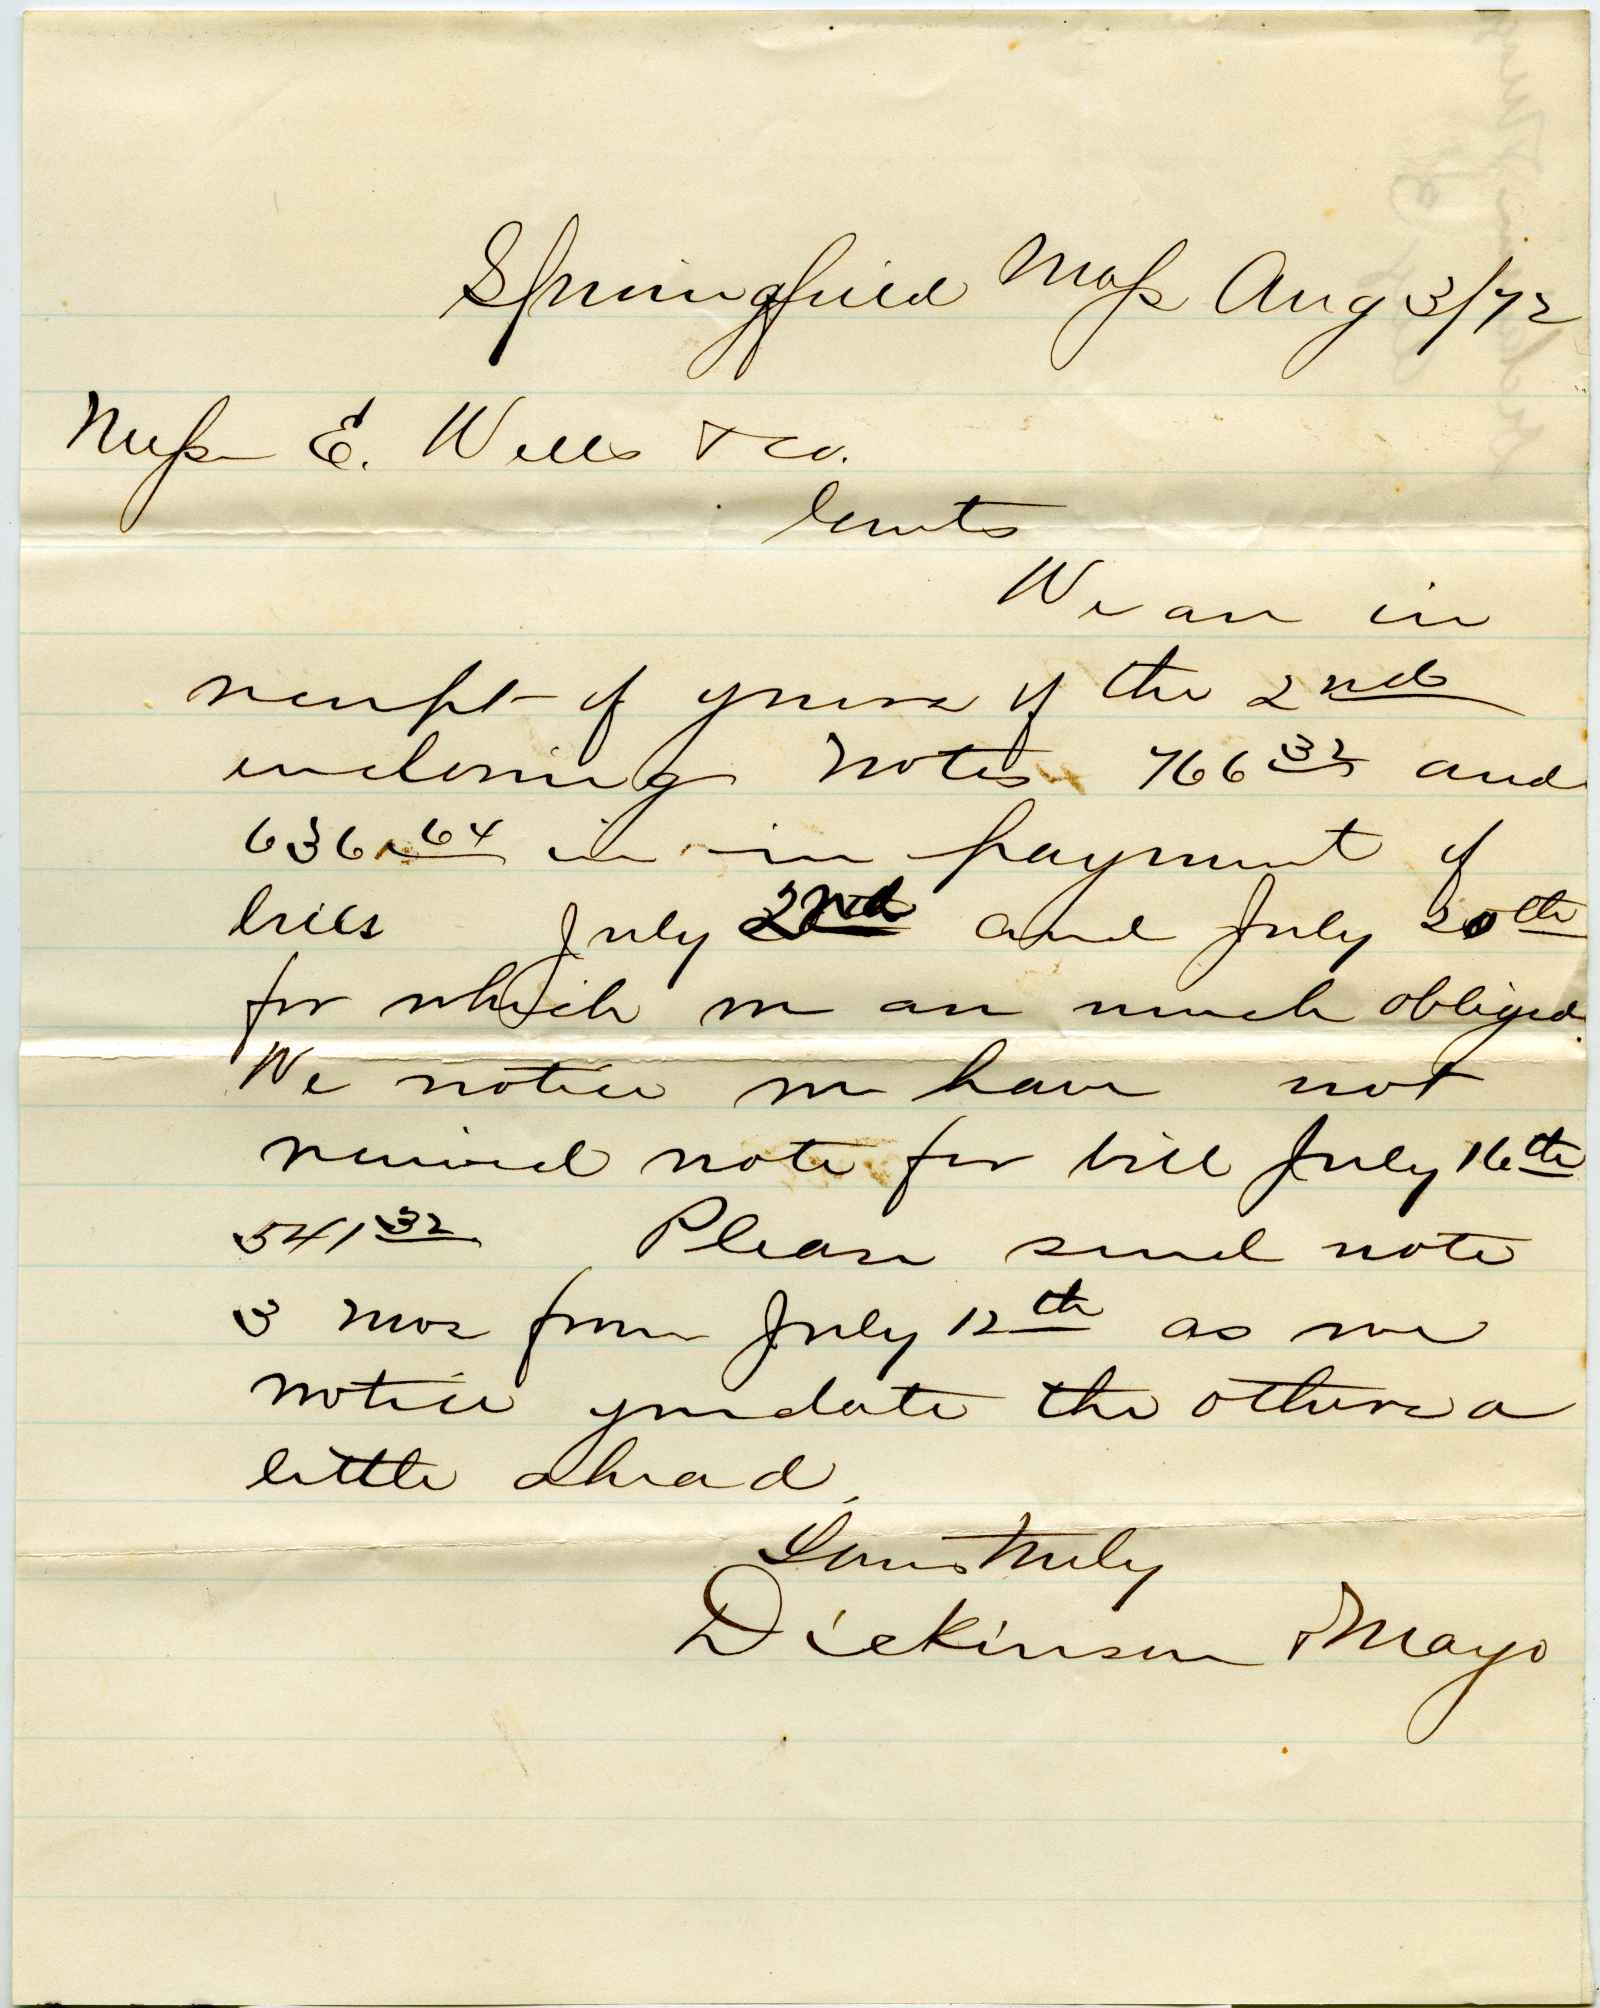 Springfield Mass Aug 3/72
Mess E. Wells & Co.
Gents
We are in
receipt of yours of the 2nd
enclosing notes 766 32 and
636.64 in in payment of
bills July 2nd and July 20th
for which we are much obliged.
We notice we have not
received note for bill July 16th
541 32 Please send note
3 mos from July 12th as we
notice you date the others a
little ahead.
Yours truly
Dickinson & Mayo